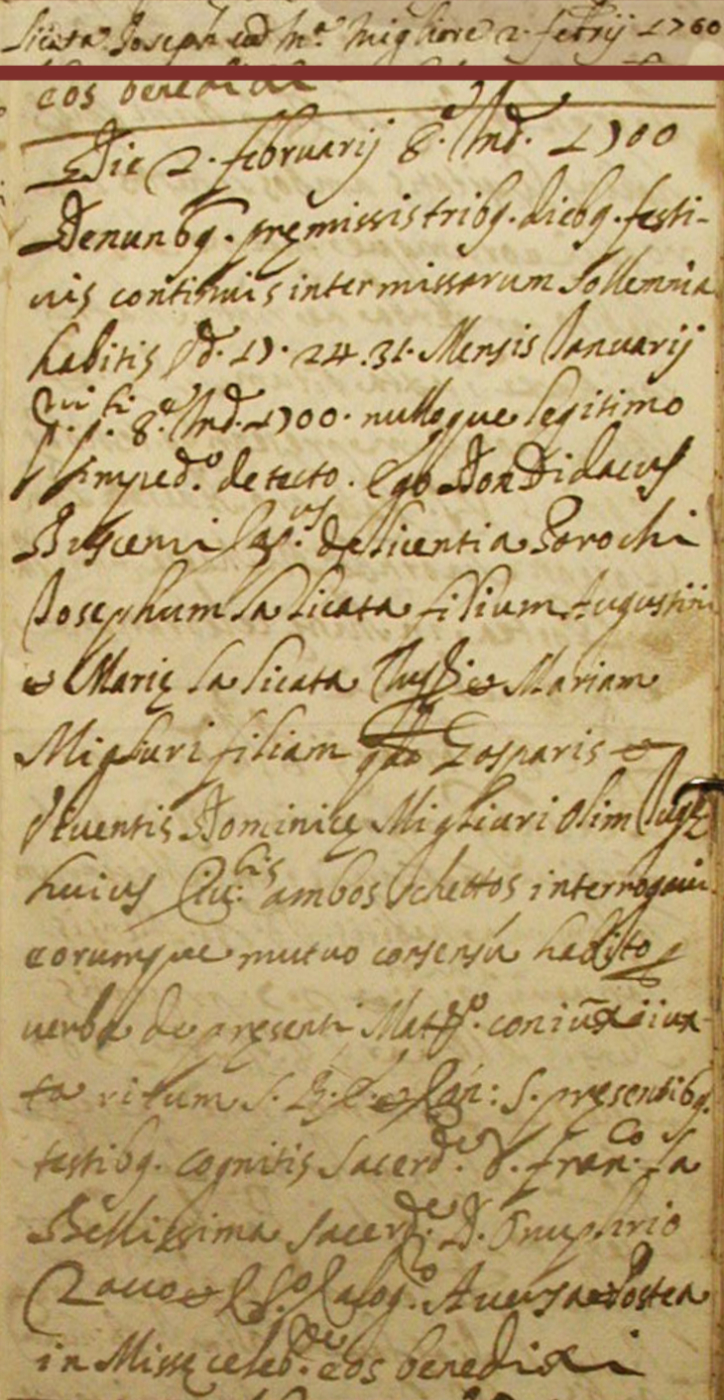 Licata Joseph cũ M.ª Migliore 2. febrij 1700
eos benedixi
Die 2. februarij 8.ª Ind. 1700
Denunbq. premissis tribq. diebq. festi-
uis continuis intermissarum sollemnia
habitis sd. 17. 24. 31. Mensis Januarij
8.ª Ind. 1700. nulloque legitimo
imped.º detecto. Ego Don Didacus
Buscemi de licentia Parochi
Josephum la licata filium Augustini
et Marię la licata et Mariam
Migliuri filiam qđ Gasparis et
viuentis Dominicę Migliuri olim Jugę
huius Ciu:tis ambos schettos interrogaui
eorumque mutuo consensu habito
verba de presenti Matr.º coniũxi iux-
ta ritum S. R. E. et S. presentibq.
testibq. cognitis Sacerd.te D. Fran.co la
Bellissima Sacerd.te D. Onuphrio
Zauo et Calog.º Auersa et Postea
in Missę celeb.ne eos benedixi